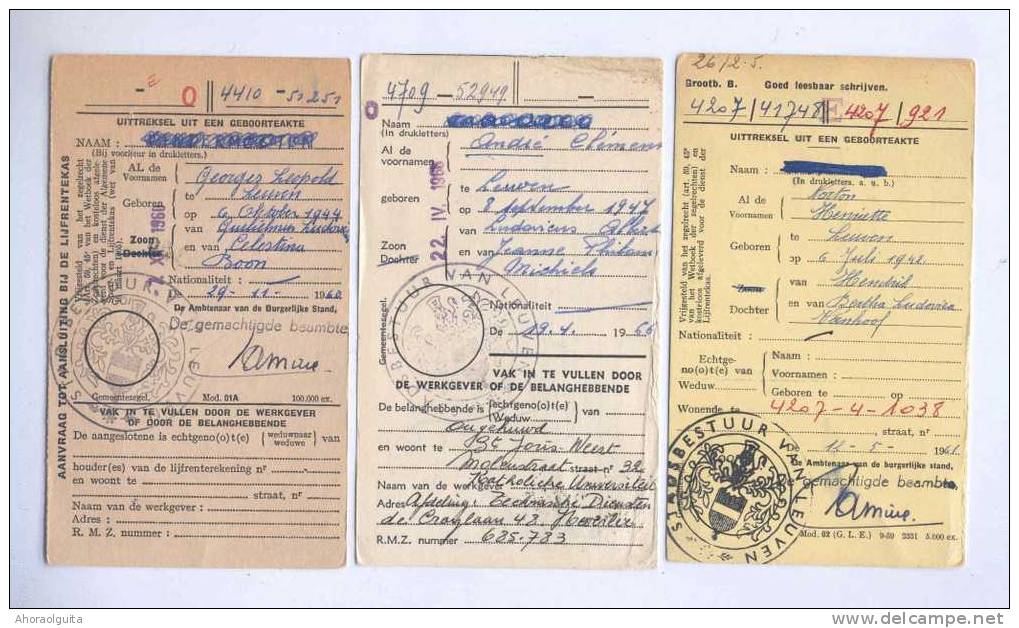 E
O
4410 - 51251
UITTREKSEL UIT EEN GEBOORTEAKTE
NAAM :
(Bij voorkeur in drukletters.)
AL de
Voornamen
Georges Leopold
te Leuven
Geboren
op 6 Oktober 1944
van
Zoon
Dochter
en van Celestina
Boon
Nationaliteit :
De 29 - 11 - 1960
De Ambtenaar van de Burgerlijke Stand,
De gemachtigde beambte
Gemeentezegel.
Mod. 01A
100.000 ex.
VAK IN TE VULLEN DOOR DE WERKGEVER
OF DOOR DE BELANGHEBBENDE
De aangeslotene is echtgeno(o)t(e)
(weduwnaar
weduwe)
van
houder(es) van de lijfrenterekening nr
en woont te
straat, nr
Naam van de werkgever :
Adres :
R. M. Z. nummer :
AANVRAAG TOT AANSLUITING BIJ DE LIJFRENTEKAS
4709 - 52949
Naam
(In drukletters)
Al de
voornamen
André
te Leuven
Geboren
op 8 september 1947
van Ludovicus Albert
Zoon
Dochter
en van Jeanne
Michiels
22. IV. 1966
Nationaliteit
De 19.4. 1966
Gemeentezegel.
STADSBESTUUR VAN LEUVEN
VAK IN TE VULLEN DOOR
DE WERKGEVER OF DE BELANGHEBBENDE
De belanghebbende is
(echtgeno(o)t(e)
(Weduw
van
Ongehuwd
en woont te St Joris Weert
Molenstraat straat-nr 32
Naam van de werkgever Katholieke Universiteit
Adres Afdeling: Technische Diensten
de Croylaan 42. Heverlee
R.M.Z. nummer 685.783
26/2.5.
Grootb. B.
Goed leesbaar schrijven.
4207/41748
E
4207/921
UITTREKSEL UIT EEN GEBOORTEAKTE
Naam :
(In drukletters, a. u. b.)
Al de
Voornamen
Henriette
Geboren
te Leuven
op 6 Juli 1942
van Hendrik
en van Bertha Ludovica
Vanhoof
Dochter
Nationaliteit :
Echtge-
no(o)t van
Weduw.
Naam :
Voornamen :
Geboren te
op
Wonende te 4207-4-1038
straat, nr
De 12 - 5 - 1961
De Ambtenaar van de burgerlijke stand,
De gemachtigde beambte,
STADSBESTUUR VAN LEUVEN
Mod. 02 (G. L. E.) 9-59 2331 5.000 ex.
Ahoraolguita
www.delcampe.net